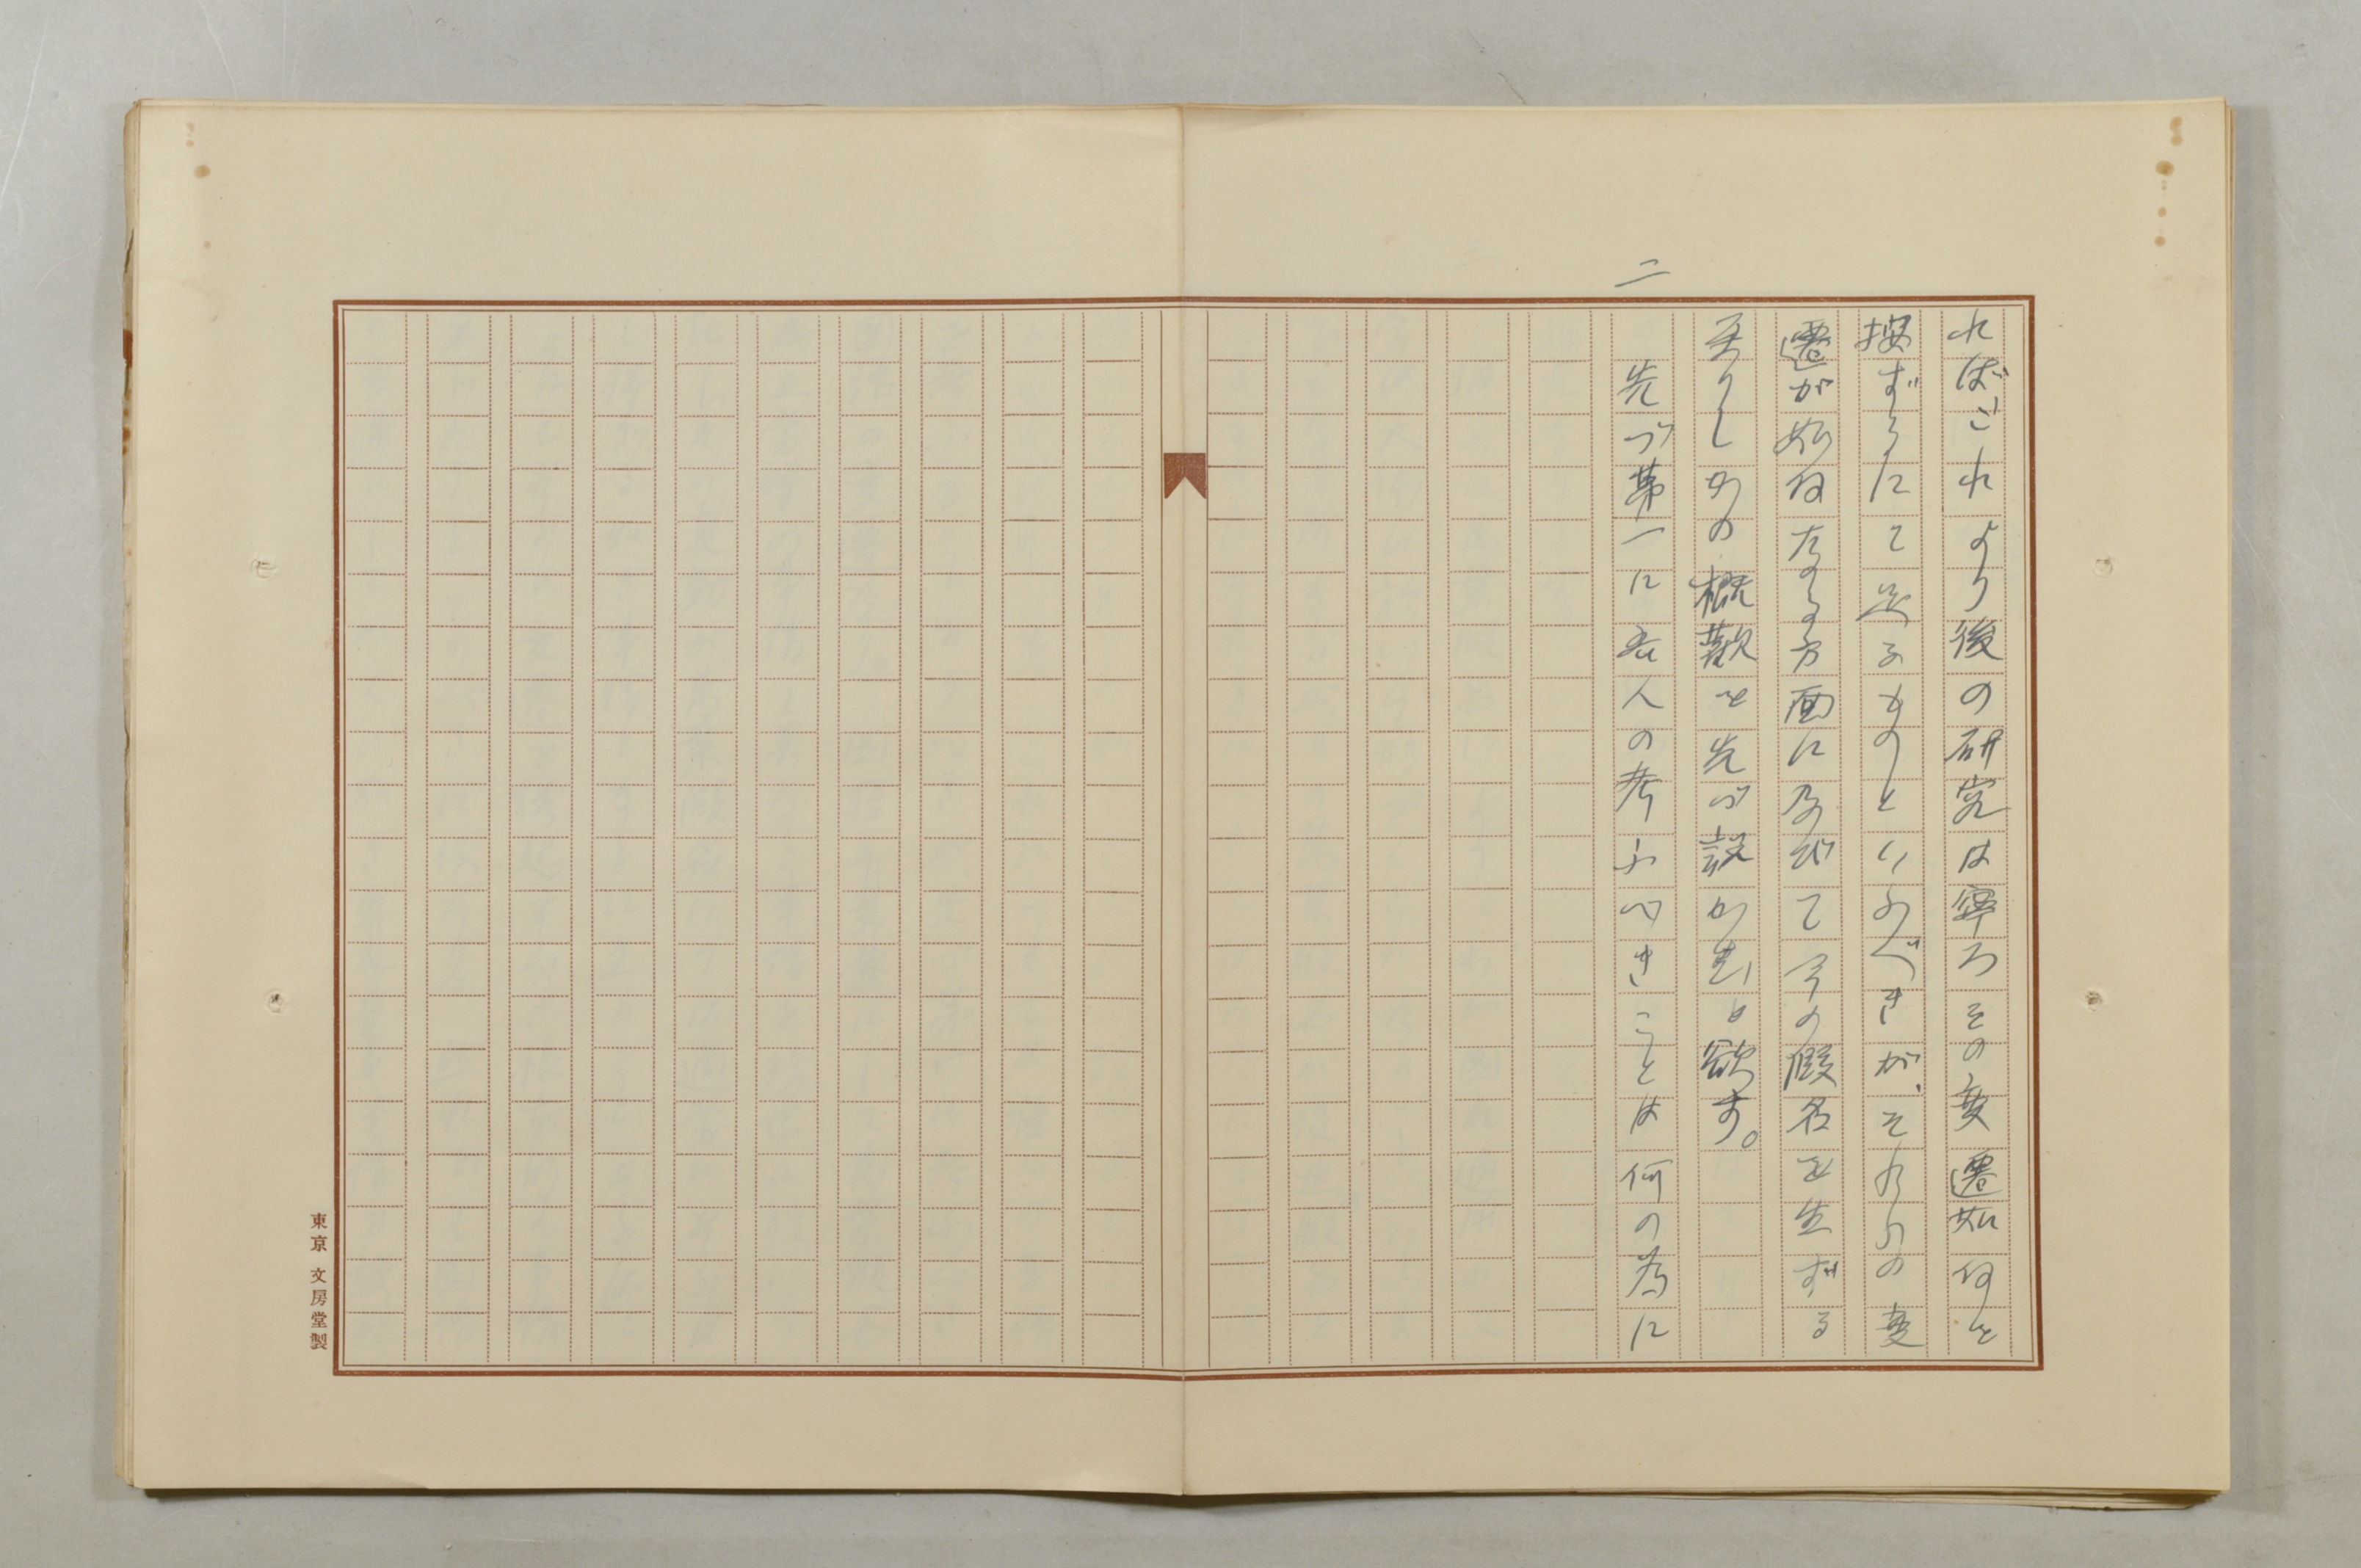 ればこれより後の研究は寧ろその変遷如何と
按ずるにて足るものといふべきが、それらの変
遷が如何なる方面に及びて今の假名を生ずる
至りしかの概觀を先づ説か むと欲す。
二
先づ第一に吾人の考ふべきことは何の為に
東京 文房堂製